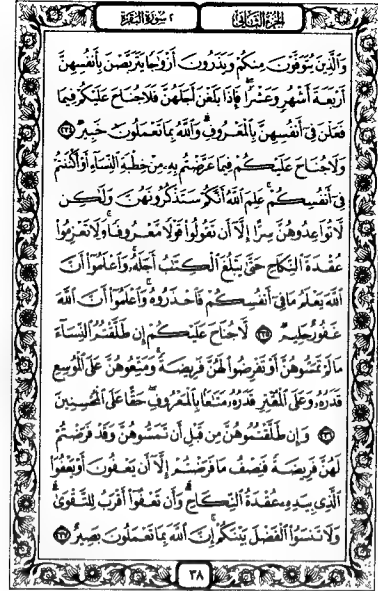 الجزء الثاني ٢ سورة البقرة
وَٱلَّذِينَ يُتَوَفَّوْنَ مِنكُمْ وَيَذَرُونَ أَزْوَٰجًا يَتَرَبَّصْنَ بِأَنفُسِهِنَّ
أَرْبَعَةَ أَشْهُرٍ وَعَشْرًا ۖ فَإِذَا بَلَغْنَ أَجَلَهُنَّ فَلَا جُنَاحَ عَلَيْكُمْ فِيمَا
فَعَلْنَ فِىٓ أَنفُسِهِنَّ بِٱلْمَعْرُوفِ ۗ وَٱللَّهُ بِمَا تَعْمَلُونَ خَبِيرٌ ٢٣٤
وَلَا جُنَاحَ عَلَيْكُمْ فِيمَا عَرَّضْتُم بِهِۦ مِنْ خِطْبَةِ ٱلنِّسَآءِ أَوْ أَكْنَنتُمْ
فِىٓ أَنفُسِكُمْ ۚ عَلِمَ ٱللَّهُ أَنَّكُمْ سَتَذْكُرُونَهُنَّ وَلَٰكِن
لَّا تُوَاعِدُوهُنَّ سِرًّا إِلَّآ أَن تَقُولُوا۟ قَوْلًا مَّعْرُوفًا ۚ وَلَا تَعْزِمُوا۟
عُقْدَةَ ٱلنِّكَاحِ حَتَّىٰ يَبْلُغَ ٱلْكِتَٰبُ أَجَلَهُۥ ۚ وَٱعْلَمُوٓا۟ أَنَّ
ٱللَّهَ يَعْلَمُ مَا فِىٓ أَنفُسِكُمْ فَٱحْذَرُوهُ ۚ وَٱعْلَمُوٓا۟ أَنَّ ٱللَّهَ
غَفُورٌ حَلِيمٌ ٢٣٥ لَّا جُنَاحَ عَلَيْكُمْ إِن طَلَّقْتُمُ ٱلنِّسَآءَ
مَا لَمْ تَمَسُّوهُنَّ أَوْ تَفْرِضُوا۟ لَهُنَّ فَرِيضَةً ۚ وَمَتِّعُوهُنَّ عَلَى ٱلْمُوسِعِ
قَدَرُهُۥ وَعَلَى ٱلْمُقْتِرِ قَدَرُهُۥ مَتَٰعًۢا بِٱلْمَعْرُوفِ ۖ حَقًّا عَلَى ٱلْمُحْسِنِينَ
٢٣٦ وَإِن طَلَّقْتُمُوهُنَّ مِن قَبْلِ أَن تَمَسُّوهُنَّ وَقَدْ فَرَضْتُمْ
لَهُنَّ فَرِيضَةً فَنِصْفُ مَا فَرَضْتُمْ إِلَّآ أَن يَعْفُونَ أَوْ يَعْفُوَا۟
ٱلَّذِى بِيَدِهِۦ عُقْدَةُ ٱلنِّكَاحِ ۚ وَأَن تَعْفُوٓا۟ أَقْرَبُ لِلتَّقْوَىٰ ۚ
وَلَا تَنسَوُا۟ ٱلْفَضْلَ بَيْنَكُمْ ۚ إِنَّ ٱللَّهَ بِمَا تَعْمَلُونَ بَصِيرٌ ٢٣٧
٣٨